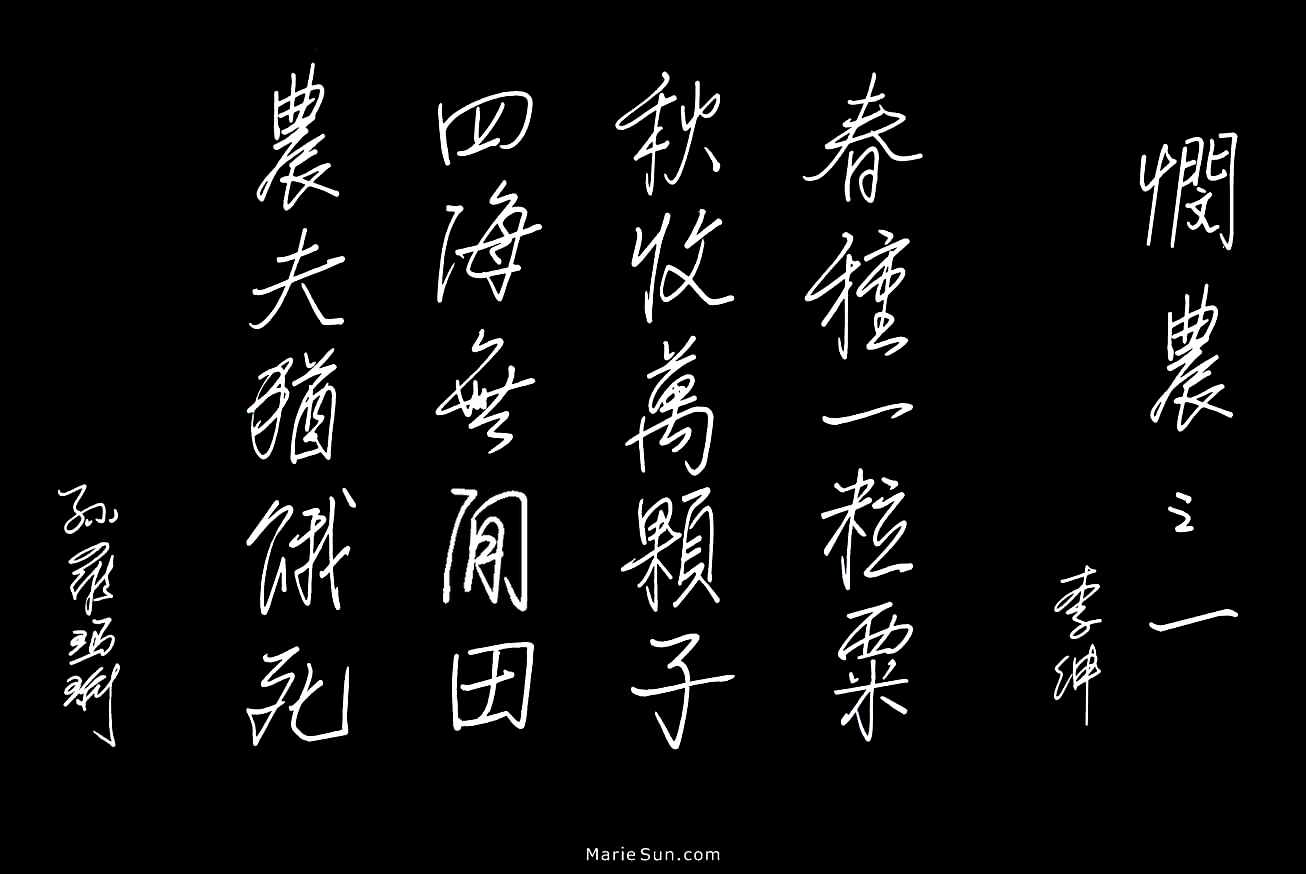 憫農之一
李紳
春種一粒粟
秋收萬顆子
四海無閒田
農夫猶餓死
孫羅瑪琍
MarieSun.com